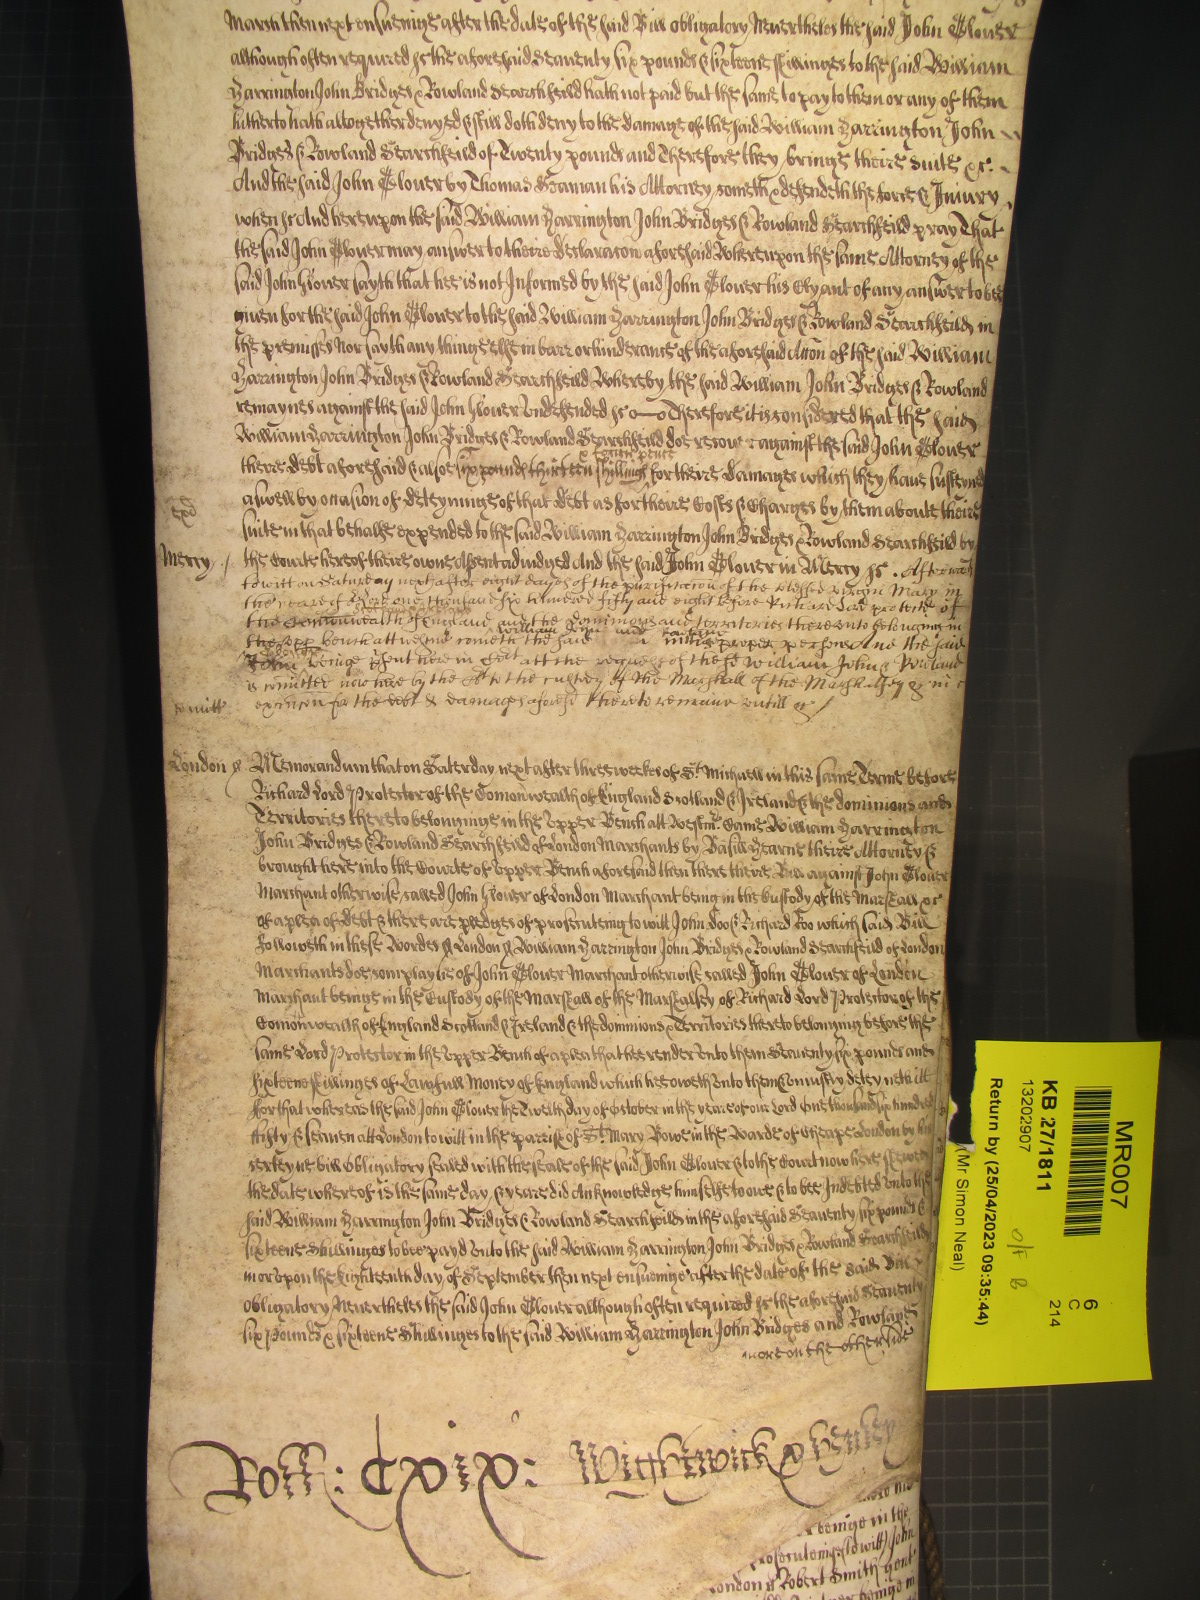 March then next ensueinge after the date of the said Bill obligatory Neverthelesse the said John Glover
although often required &c the aforesaid Seaventy six pounds & sixteene shillinges to the said William
Harrington John Bridges & Rowland Searchfeild hath not paid but the same to pay to them or any of them
hitherto hath altogether denyed & still doth deny to the damage of the said William Harrington John
Bridges & Rowland Searchfeild of Twenty pounds and Therefore they bringe theire suite &c.
And the said John Glover by Thomas Seaman his Attorney cometh & defendeth the force & Iniury
when &c And hereupon the said William Harrington John Bridges & Rowland Searchfeild pray That
the said John Glover may answer to theire declaracon aforesaid Whereupon the same Attorney of the
said John Glover sayth that hee is not Informed by the said John Glover his Clyant of any answer to bee
given for the said John Glover to the said William Harrington John Bridges & Rowland Searchfeild in
the premisses Nor sayth any thinge else in barr or hinderance of the aforesaid Accon of the said William
Harrington John Bridges & Rowland Searchfeild Whereby the said William John Bridges & Rowland
remaynes against the said John Glover Undefended &c Therefore it is considered that the said
William Harrington John Bridges & Rowland Searchfeild doe recover against the said John Glover
& fower pence
theire debt aforesaid & alsoe six pounds thirteen shillings for theire damages which they have susteyned
aswell by occasion of deteyninge of that debt as for theire Costs & Charges by them aboute theire
suite in that behalfe expended to the said William Harrington John Bridges & Rowland Searchfeild by
Mercy
the Courte here of theire owne Assent adiudged And the said John Glover in Mercy &c. Afterwards
to witt on Saturday next after eight dayes of the purificacon of the blessed virgin Mary in
the yeare of Lord one thousand six hundred fifty and eight before Richard Lord protector of
the Commonwealth of England and the dominions and territories thereunto belonginge in
the upp bench att westmr cometh the said William John and Rowland in proper persons And the said
John beinge present here in Court att the request of the sd William John & Rowland
is comitted by the Court to the custody of the Marshall of the Marshalsey &c in
execucon for the debt & damages aforesd there to remaine untill &c
London ss Memorandum that on Saterday next after three weekes of St. Michaell in this same Terme before
Richard Lord Protector of the Comonwealth of England Scotland & Ireland & the dominions and
Territories thereto belonginge in the Upper Bench att Westmr. Came William Harrington
John Bridges & Rowland Searchfeild of London Marchants by Basill Hearne theire Attorney &
brought here into the Courte of Upper Bench aforesaid then there theire Bill against John Glover
Marchant otherwise called John Glover of London Marchant being in the Custody of the Marshall &c
of a plea of debt & there are pledges of prosecuteing to witt John doo & Richard Roo which said Bill
followeth in these Wordes ss London ss William Harrington John Bridges & Rowland Searchfeild of London
Marchants doe complayne of John Glover Marchant otherwise called John Glover of London
Marchant beinge in the Custody of the Marshall of the Marshalsey of Richard Lord Protector of the
Comonwealth of England Scotland & Ireland & the dominions & Territories thereto belonging before the
same Lord Protector in the Upper Bench of a plea that hee render unto them Seaventy six pounds and
sixteene shillinges of Lawfull Money of England which hee oweth unto them & uniustly deteyneth
for that whereas the said John Glover the day of October in the yeare of our Lord One thousand six hundred
fifty & seaven att London to witt in the parrish of St. Mary Bowe in the Warde of Cheape London by his
certeyne bill obligatory sealed with the seale of the said John Glover & to the Court now here shewed
the date whereof is the same day & yeare did Acknowledge himselfe to owe & to bee Indebted unto the
said William Harrington John Bridges & Rowland Searchfeild in the aforesaid Seaventy six pounds &
sixteene Shillinges to bee payd unto the said William Harrington John Bridges & Rowland Searchfeild
in or upon the Eighteenth day of September then next ensueinge after the date of the said Bill
obligatory Neverthelesse the said John Glover although often required &c the aforesaid Seaventy
six Pounds & sixteene Shillinges to the said William Harrington John Bridges and Rowland
more on the other side
Roll: Cxix: Wightwick &
prosecuteing (to witt) John
London ss Robert Smith gent
MR007
6
C
214
KB 27/1811
13202907
Return by (25/04/2023 09:35:44)
(Mr Simon Neal)